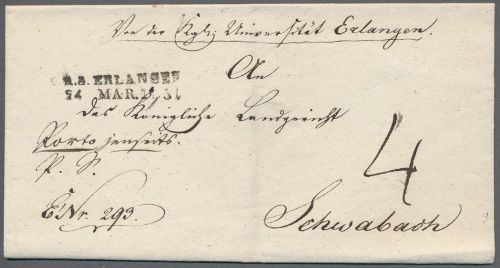 Von der Kgln Universität Erlangen.
An
R.S. ERLANGEN
24 MAR. 1831
das Königliche Landgericht
Porto jenseits.
P. S.
4
E. Nr. 293.
Schwabach